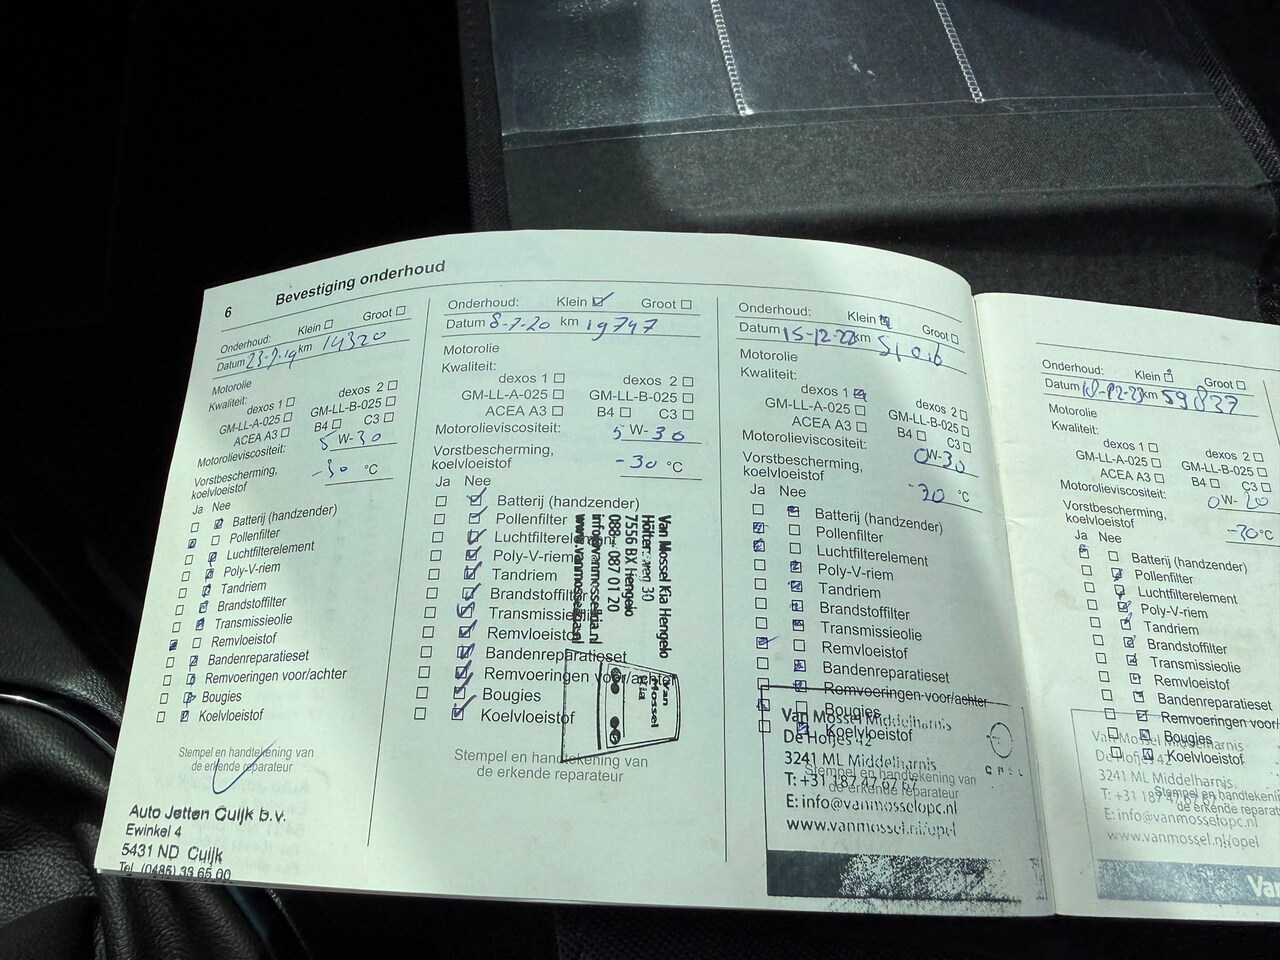 6 Bevestiging onderhoud
Onderhoud: Klein Groot
Datum 23-7-19 km 14320
Motorolie
Kwaliteit:
dexos 1 dexos 2
GM-LL-A-025 GM-LL-B-025
ACEA A3 B4 C3
Motorolieviscositeit: 5 W-30
Vorstbescherming,
koelvloeistof -30 °C
Ja Nee
Batterij (handzender)
Pollenfilter
Luchtfilterelement
Poly-V-riem
Tandriem
Brandstoffilter
Transmissieolie
Remvloeistof
Bandenreparatieset
Remvoeringen voor/achter
Bougies
Koelvloeistof
Stempel en handtekening van
de erkende reparateur
Auto Jetten Cuijk b.v.
Ewinkel 4
5431 ND Cuijk
Tel. (0485) 33 65 00
Onderhoud: Klein Groot
Datum 8-7-20 km 19747
Motorolie
Kwaliteit:
dexos 1 dexos 2
GM-LL-A-025 GM-LL-B-025
ACEA A3 B4 C3
Motorolieviscositeit: 5 W-30
Vorstbescherming,
koelvloeistof -30 °C
Ja Nee
Batterij (handzender)
Pollenfilter
Luchtfilterelement
Poly-V-riem
Tandriem
Brandstoffilter
Transmissieolie
Remvloeistof
Bandenreparatieset
Remvoeringen voor/achter
Bougies
Koelvloeistof
Stempel en handtekening van
de erkende reparateur
Van Mossel Kia Hengelo
7556 BX Hengelo
088 - 087 01 20
info@vanmosselkia.nl
Van
Mossel
Kia
Onderhoud: Klein Groot
Datum 15-12-22 km
Motorolie
Kwaliteit:
dexos 1 dexos 2
GM-LL-A-025 GM-LL-B-025
ACEA A3 B4 C3
Motorolieviscositeit: 0W-30
Vorstbescherming,
koelvloeistof °C
Ja Nee
Batterij (handzender)
Pollenfilter
Luchtfilterelement
Poly-V-riem
Tandriem
Brandstoffilter
Transmissieolie
Remvloeistof
Bandenreparatieset
Remvoeringen voor/achter
Bougies
Koelvloeistof
Stempel en handtekening van
de erkende reparateur
Van Mossel Middelharnis
De Hofjes 42
3241 ML Middelharnis
T: +31 187 47 67 67
E: info@vanmosselopc.nl
www.vanmossel.nl/opel
Onderhoud: Klein Groot
Datum km 59837
Motorolie
Kwaliteit:
dexos 1 dexos 2
GM-LL-A-025 GM-LL-B-025
ACEA A3 B4 C3
Motorolieviscositeit: 0W-20
Vorstbescherming,
koelvloeistof °C
Ja Nee
Batterij (handzender)
Pollenfilter
Luchtfilterelement
Poly-V-riem
Tandriem
Brandstoffilter
Transmissieolie
Remvloeistof
Bandenreparatieset
Remvoeringen voor/
Bougies
Koelvloeistof
Stempel en handtekening
de erkende
Van Mossel Middelharnis
De Hofjes 42
3241 ML Middelharnis
T: +31 187 47 67 67
E: info@vanmosselopc.nl
www.vanmossel.nl/opel
Va